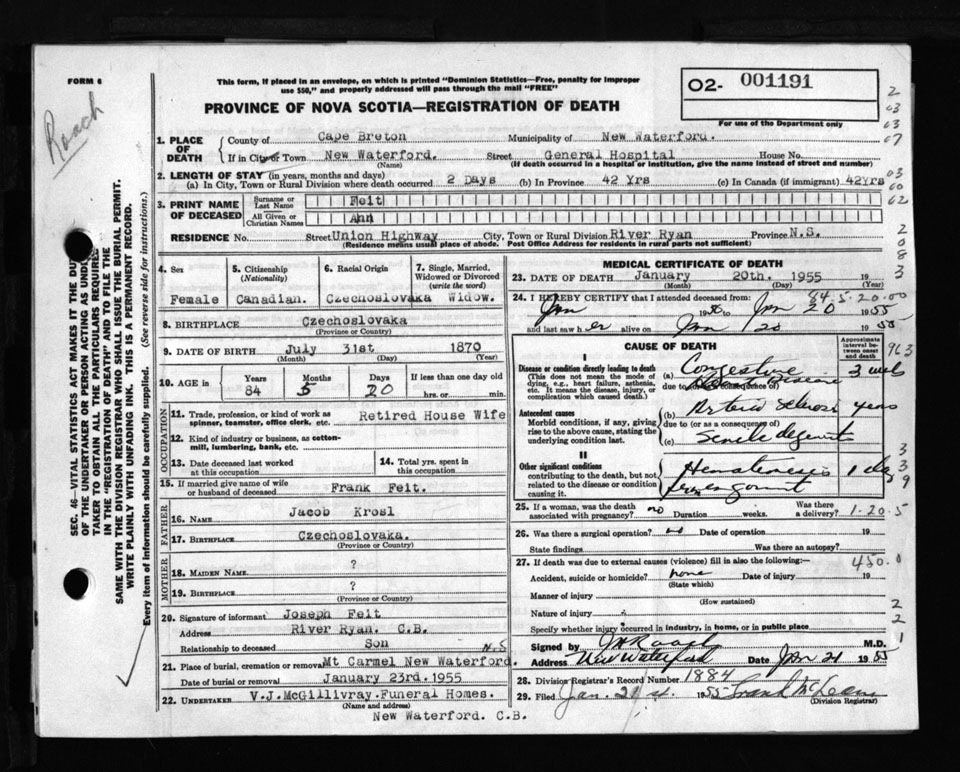 FORM 6
Roach
This form, if placed in an envelope, on which is printed "Dominion Statistics—Free, penalty for improper
use $50," and properly addressed will pass through the mail "FREE"
PROVINCE OF NOVA SCOTIA—REGISTRATION OF DEATH
O2- 001191
For use of the Department only
1. PLACE OF DEATH
County of Cape Breton Municipality of New Waterford.
If in City or Town New Waterford. Street General Hospital House No.
(Name) (If death occurred in a hospital or institution, give the name instead of street and number)
2. LENGTH OF STAY (in years, months and days)
(a) In City, Town or Rural Division where death occurred 2 Days (b) In Province 42 Yrs (c) In Canada (if immigrant) 42Yrs
3. PRINT NAME OF DECEASED
Surname or Last Name Feit
All Given or Christian Names Ann
RESIDENCE No. Street Union Highway City, Town or Rural Division River Ryan Province N.S.
(Residence means usual place of abode. Post Office Address for residents in rural parts not sufficient)
4. Sex 5. Citizenship (Nationality) 6. Racial Origin 7. Single, Married, Widowed or Divorced (write the word)
Female Canadian. Czechoslovaka Widow.
8. BIRTHPLACE Czechoslovaka
(Province or Country)
9. DATE OF BIRTH July 31st 1870
(Month) (Day) (Year)
10. AGE in Years Months Days If less than one day old
84 5 20 hrs. or min.
OCCUPATION
11. Trade, profession, or kind of work as spinner, teamster, office clerk, etc. Retired House Wife
12. Kind of industry or business, as cotton-mill, lumbering, bank, etc.
13. Date deceased last worked at this occupation
14. Total yrs. spent in this occupation
15. If married give name of wife or husband of deceased Frank Feit.
FATHER
16. NAME Jacob Krosl
17. BIRTHPLACE Czechoslovaka.
(Province or Country)
MOTHER
18. MAIDEN NAME ?
19. BIRTHPLACE ?
(Province or Country)
20. Signature of informant Joseph Feit
Address River Ryan. C.B.
Relationship to deceased Son N.S
21. Place of burial, cremation or removal Mt Carmel New Waterford.
Date of burial or removal January 23rd.1955
22. UNDERTAKER V.J.McGillivray.Funeral Homes.
(Name and address)
New Waterford. C.B.
MEDICAL CERTIFICATE OF DEATH
23. DATE OF DEATH January 20th. 1955 19
(Month) (Day) (Year)
84.5.20.00
24. I HEREBY CERTIFY that I attended deceased from:
Jan 1950 to Jan 20 1955
and last saw her alive on Jan 20 1955
CAUSE OF DEATH
Approximate interval between onset and death
I
Disease or condition directly leading to death
(This does not mean the mode of dying, e.g., heart failure, asthenia, etc. It means the disease, injury, or complication which caused death.)
(a) Congestive
3 wks
due to (or as a consequence of)
Antecedent causes
Morbid conditions, if any, giving rise to the above cause, stating the underlying condition last.
(b) Arterio Sclerosis years
due to (or as a consequence of)
(c) Senile
II
Other significant conditions
contributing to the death, but not related to the disease or condition causing it.
Hematemesis 1 day
25. If a woman, was the death associated with pregnancy? no Duration weeks. Was there a delivery?
1.20.5
26. Was there a surgical operation? no Date of operation 19
State findings Was there an autopsy?
27. If death was due to external causes (violence) fill in also the following:—
Accident, suicide or homicide? none Date of injury 19
(State which)
450.0
Manner of injury
(How sustained)
Nature of injury
Specify whether injury occurred in industry, in home, or in public place
Signed by JH Roach M.D.
Address New Waterford Date Jan 21 1955
28. Division Registrar's Record Number 1884
29. Filed Jan. 21st. 1955 Frank McLean
(Division Registrar)
SEC. 46. VITAL STATISTICS ACT MAKES IT THE DU
OF THE UNDERTAKER OR PERSON ACTING AS UND
TAKER TO OBTAIN ALL THE PARTICULARS REQUIRE
IN THE "REGISTRATION OF DEATH" AND TO FILE THE
SAME WITH THE DIVISION REGISTRAR WHO SHALL ISSUE THE BURIAL PERMIT.
WRITE PLAINLY WITH UNFADING INK. THIS IS A PERMANENT RECORD.
Every item of information should be carefully supplied. (See reverse side for instructions.)
2
03
63
07
03
60
62
2
0
8
3
963
3
3
9
2
2
1